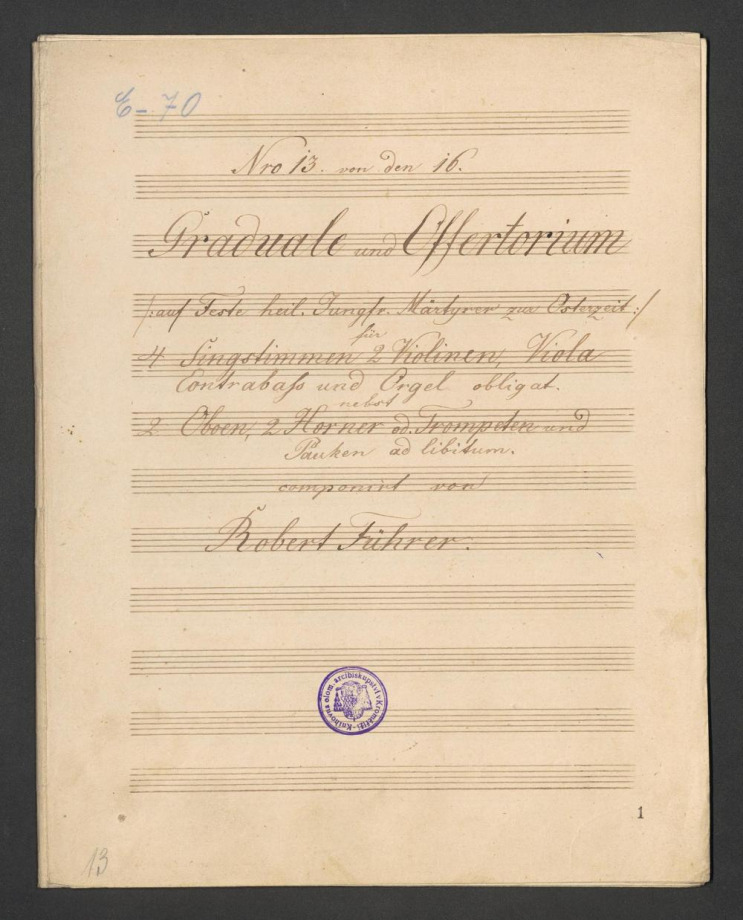 E-70
Nro 13. von den 16.
Graduale und Offertorium
/: auf Feste heil. Jungfr. Märtyrer zur Osterzeit :/
für
4 Singstimmen 2 Violinen, Viola
Contrabaſs und Orgel obligat.
nebst
2 Oboen, 2 Hörner od. Trompeten und
Pauken ad libitum.
componirt von
Robert Führer.
Knihovna olom. arcibiskupství v Kroměříži
1
13